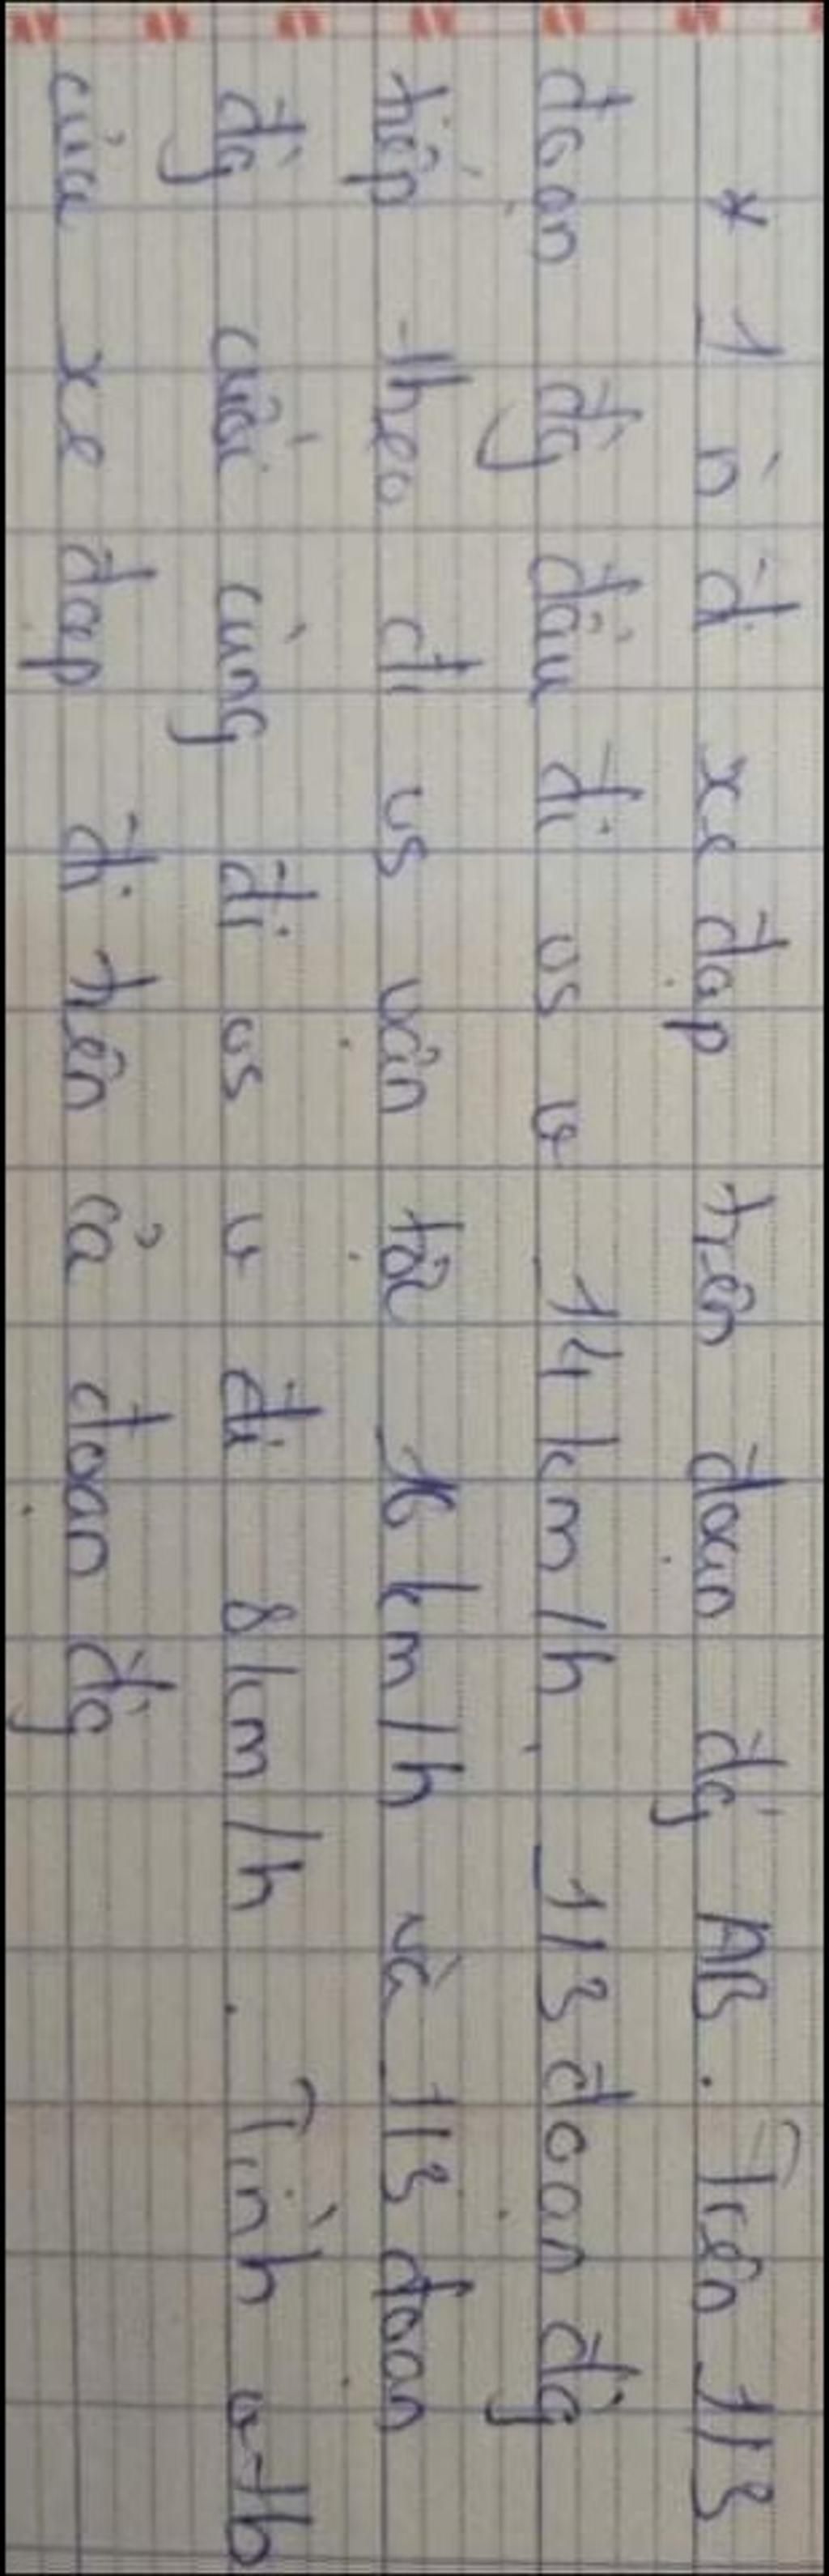 * 1 ng` đi xe đạp trên đoạn đg` AB. Trên 1/3
đoạn đg` đầu đi vs v 14 km/h. 1/3 đoạn đg`
tiếp theo đi vs vận tốc 16 km/h và 1/3 đoạn
đg` cuối cùng đi vs v đi 8 km/h. Tính vtb
của xe đạp đi trên cả đoạn đg`